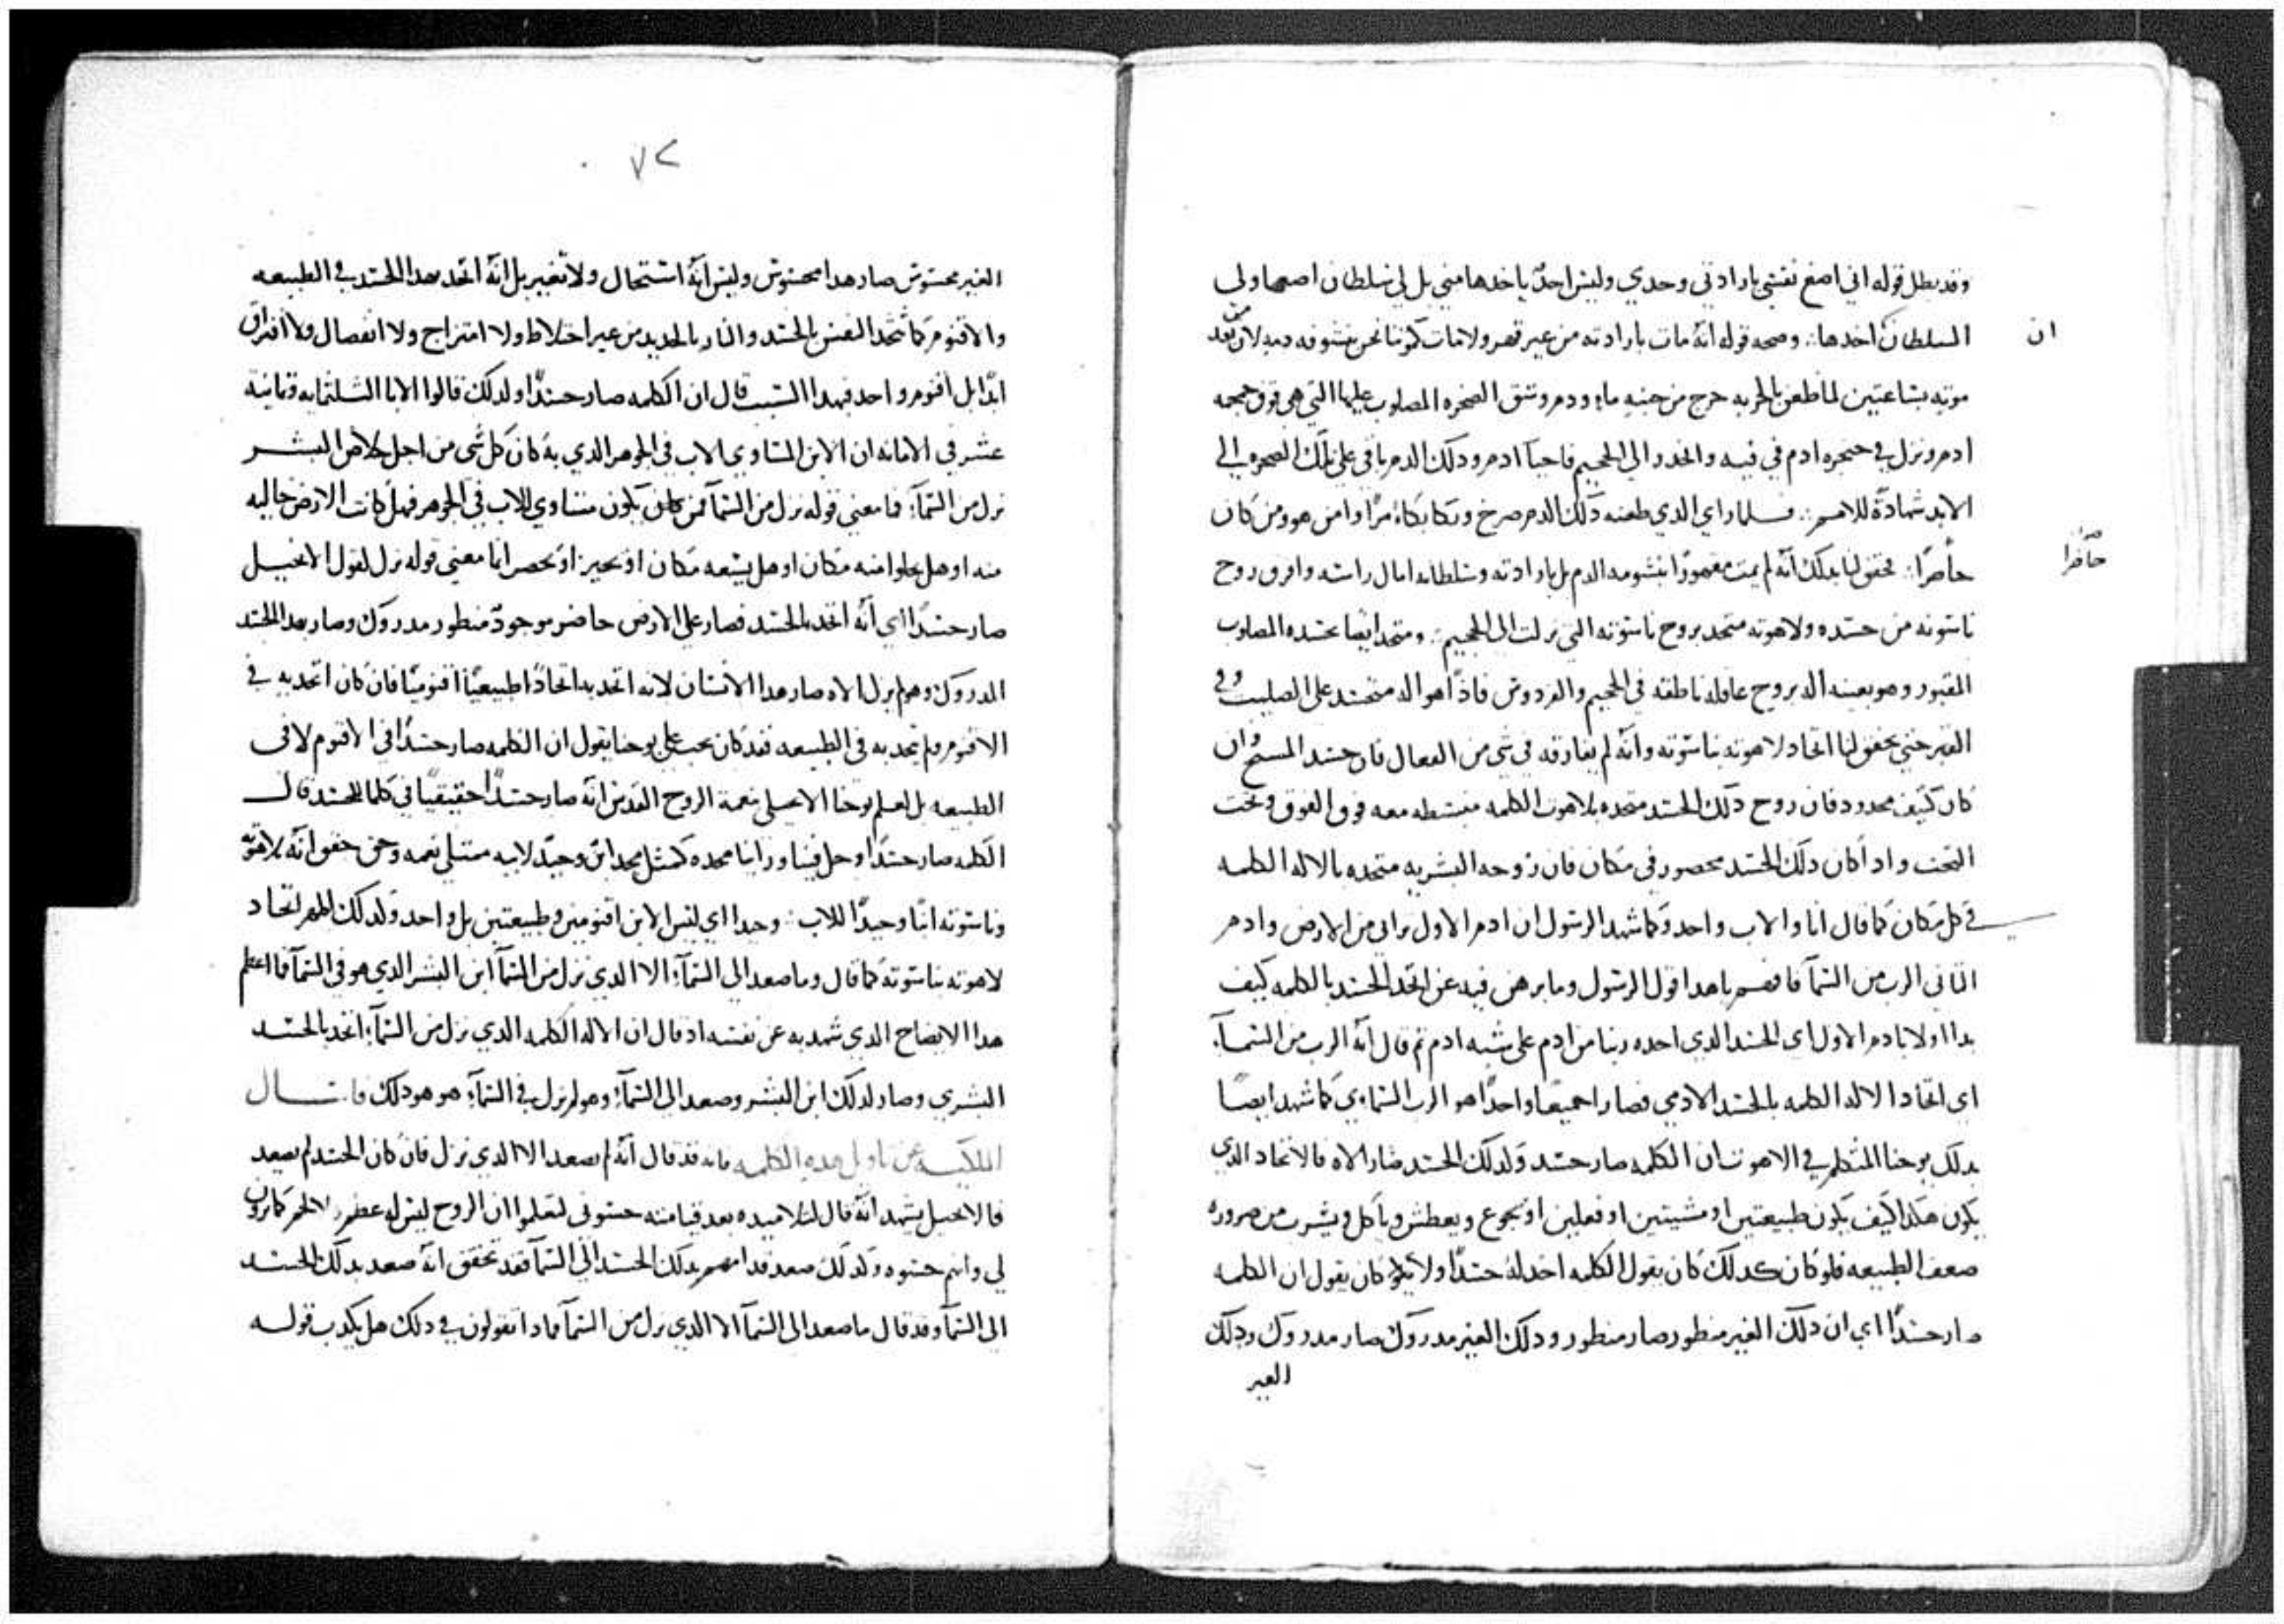 وقد بطل قوله اني اضع نفسي بارادتي وحدي وليس احدٌ ياخدها مني بل لي سلطان اضعها ولي
ان
السلطان اخدها: وصحه قوله انه مات بارادته من غير قهر ولا مات كموتنا نحن بنشوفه دمه لان بعد
موته بساعتين لما طعن بالحربه خرج من جنبه ماء ودم وشق الصخره المصلوب عليها التي هي فوق جمجمه
ادم ونزل في حنجره ادم في فيه وانحدر الي الجحيم فاحيا ادم ودلك الدم باقي علي تلك الصخره الي
الابد شهادةً للامم: فلما راي الذي طعنه دلك الدم صرخ وبكا بكاءً مرًا وامن هو ومن كان
حاضرًا: تحقق لنا بدلك انه لم يمت مقهورًا بنشومه الدم بل بارادته وسلطانه امال راسه وافرق روح
حاضرا
ناسوته من جسده ولاهوته متحد بروح ناسوته التي نزلت الي الجحيم: ومتحد ايضا بجسده المصلوب
المقبور وهو بعينه اله بروح عاقله ناطقه في الجحيم والفردوس فادًا هو اله متجسد علي الصليب وفي
القبر حتي يحقق لنا اتحاد لاهوته بناسوته وانه لم يفارقه في شي من الفعال فان جسد المسيح وان
كان كتيف محدود فان روح دلك الجسد متحده بلاهوت الكلمه منبسطه معه فوق الفوق وتحت
التحت واداكان دلك الجسد محصور في مكان فان روحه البشريه متحده بالاله الكلمه
في كل مكان كما قال انا والاب واحد وكما شهد الرسول ان ادم الاول ترابي من الارض وادم
التاني الرب من السما فافهم ياهدا قول الرسول وما برهن فيه عن اتحاد الجسد بالكلمه كيف
بدا اولا بادم الاول اي الجسد الدي اخده ربنا من ادم علي شبه ادم تم قال انه الرب من السمآ
اي اتحاد الاله الكلمه بالجسد الادمي فصارا جميعا واحدًا هو الرب السماوي كما شهد ايضًا
بدلك يوحنا المتكلم في الاهوت ان الكلمه صار جسد ولدلك الجسد صار الاه فالاتحاد الدي
يكون هكدا كيف يكون طبيعتين او مشيتين او فعلين او يجوع ويعطش وياكل ويشرب من ضروره
ضعف الطبيعه فلو كان كدلك كان يقول الكلمه اخد له جسدًا ولا كان يقول ان الكلمه
صار جسدًا اي ان دلك الغير منظور صار منظور ودلك الغير مدروك صار مدروك ودلك
الغير
٧٢
الغير محسوس صار هدا محسوس وليس انه استحال ولا تغير بل انه اتحد بهدا الجسد في الطبيعه
والاقنوم كما تتحد النفس بالجسد والنار بالحديد من غير اختلاط ولا امتزاج ولا انفصال ولا افتراق
ابدًا بل اقنوم واحد فبهدا السبب قال ان الكلمه صار جسدًا ولدلك قالوا الابا التلتمايه وتمانيه
عشر في الامانه ان الابن المساوي الاب في الجوهر الدي به كان كل شي من اجل خلاص البشر
نزل من السمآ: فما معني قوله نزل من السمآ فمن كان يكون متساوي للاب في الجوهر فهل كانت الارض خاليه
منه او هل يخلوا منه مكان او هل يسعه مكان او يحيز او يحصر انما معني قوله نزل لقول الانجيل
صار جسدًا اي انه اتحد بالجسد فصار علي الارض حاضر موجودٌ منظور مدروك وصار بهدا الجسد
المدروك وهو لم يزل الاه صار هدا الانسان لانه اتحد به اتحادًا طبيعيًا اقنوميًا فان كان اتحد به في
الاقنوم ولم يتحد به في الطبيعه فقد كان يجب علي يوحنا يقول ان الكلمه صار جسدًا في الاقنوم لا في
الطبيعه بل لعلم يوحنا الانجيلي بنعمة الروح القدس انه صار جسدًا حقيقيًا في كلما للجسد قال
الكلمه صار جسدًا وحل فينا وراينا مجده كمتل مجد ابن وحيد لابيه ممتلي نعمه وحق حقق انه بلاهوته
وناسوته ابنًا وحيدًا للاب: وحيدا اي ليس الابن اقنومين وطبيعتين بل واحد ولدلك اظهر اتحاد
لاهوته بناسوته كما قال وما صعد الي السمآ: الا الدي نزل من السمآ ابن البشر الدي هو في السمآ فاعلم
هدا الايضاح الدي شهد به عن نفسه اد قال ان الاله الكلمه الدي نزل من السمآ: اتحد بالجسد
البشري وصار لدلك ابن البشر وصعد الي السمآ: وهو لم يزل في السمآ: هو هو دلك فاتسال
الملكيه عن تاويل هده الكلمه فانه قد قال انه لم يصعد الا الدي نزل فان كان الجسد لم يصعد
فالانجيل يشهد انه قال لتلاميده بعد قيامته جسوني لتعلموا ان الروح ليس له عظم ولا لحم كما ترون
لي وانهم جسوه ولدلك صعد قدامهم بدلك الجسد الي السمآ فقد تحقق انه صعد بدلك الجسد
الي السمآ وقد قال ما صعد الي السمآ الا الدي نزل من السمآ فمادا تقولون في دلك هل يكدب قوله